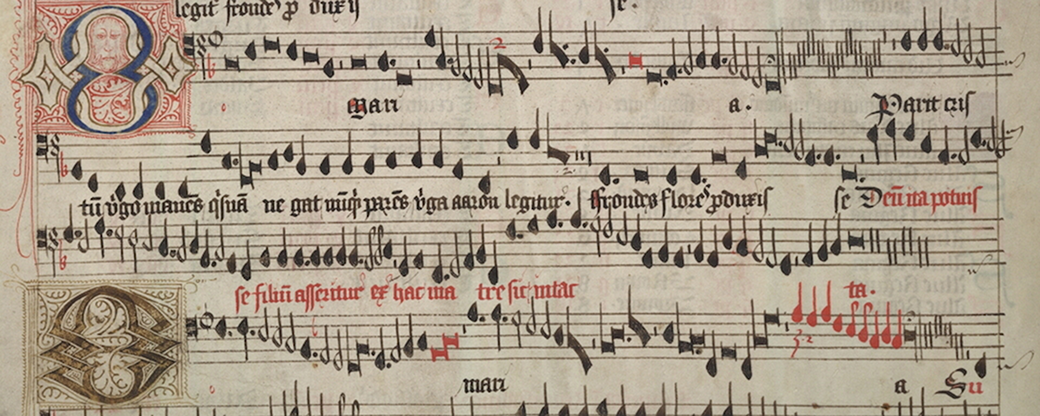 legit frondeˢ ꝓ duxis se.
gari a. Parit cris
tū v̓go manēs qͥsnā ne gat nūqͣ parēs v̓ga aaron legitur. frondes floreˢ ꝓduxis se Deū ita potuis
se filiū asseritur ex hac ma tre sic intac ta.
mari a Su